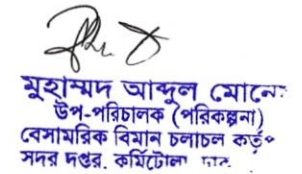 মুহাম্মদ আব্দুল মোনে
উপ-পরিচালক (পরিকল্পনা)
বেসামরিক বিমান চলাচল কর্তৃপ
সদর দপ্তর, কুর্মিটোলা